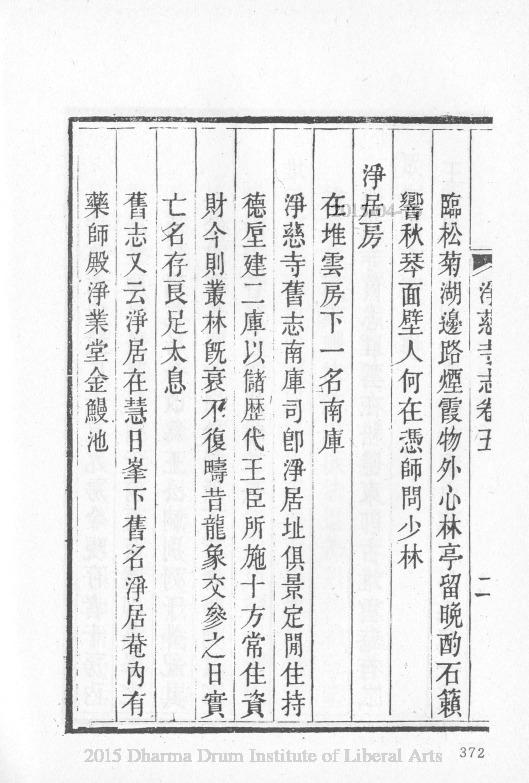 淨慈寺志卷五 二
臨松菊湖邊路煙霞物外心林亭留晚酌石籟
響秋琴面壁人何在憑師問少林
淨居房
在堆雲房下一名南庫
淨慈寺舊志南庫司卽淨居址俱景定閒住持
德垕建二庫以儲歴代王臣所施十方常住資
財今則叢林旣衰不復疇昔龍象交參之日實
亡名存良足太息
舊志又云淨居在慧日峯下舊名淨居菴內有
藥師殿淨業堂金鰻池
372
2015 Dharma Drum Institute of Liberal Arts